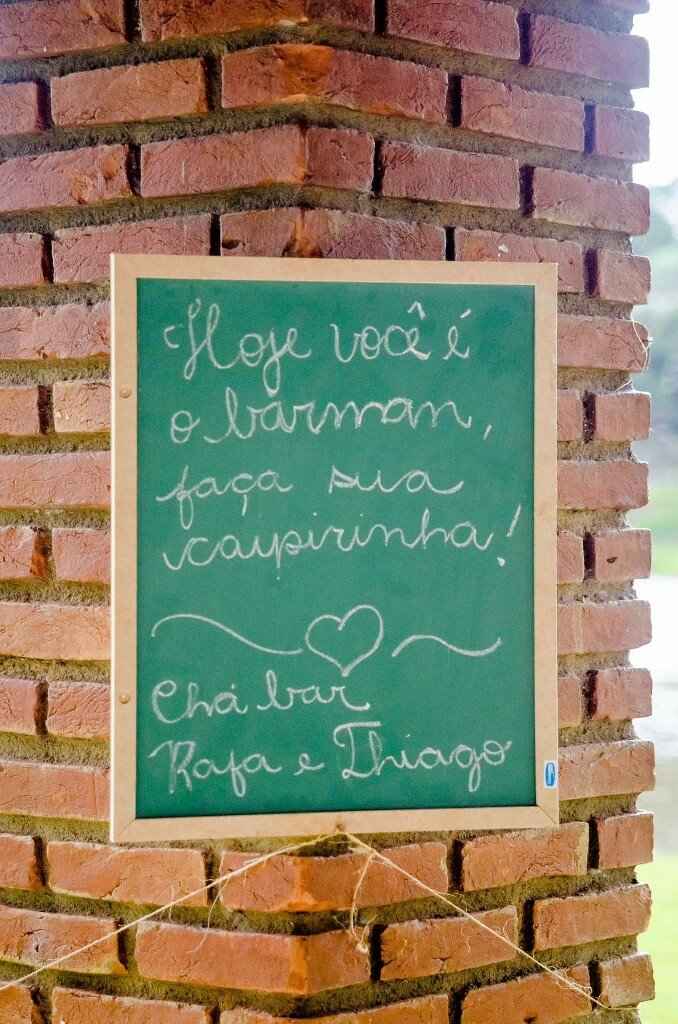 Hoje você é
o barman,
faça sua
caipirinha!
Chá bar
Rafa e Thiago